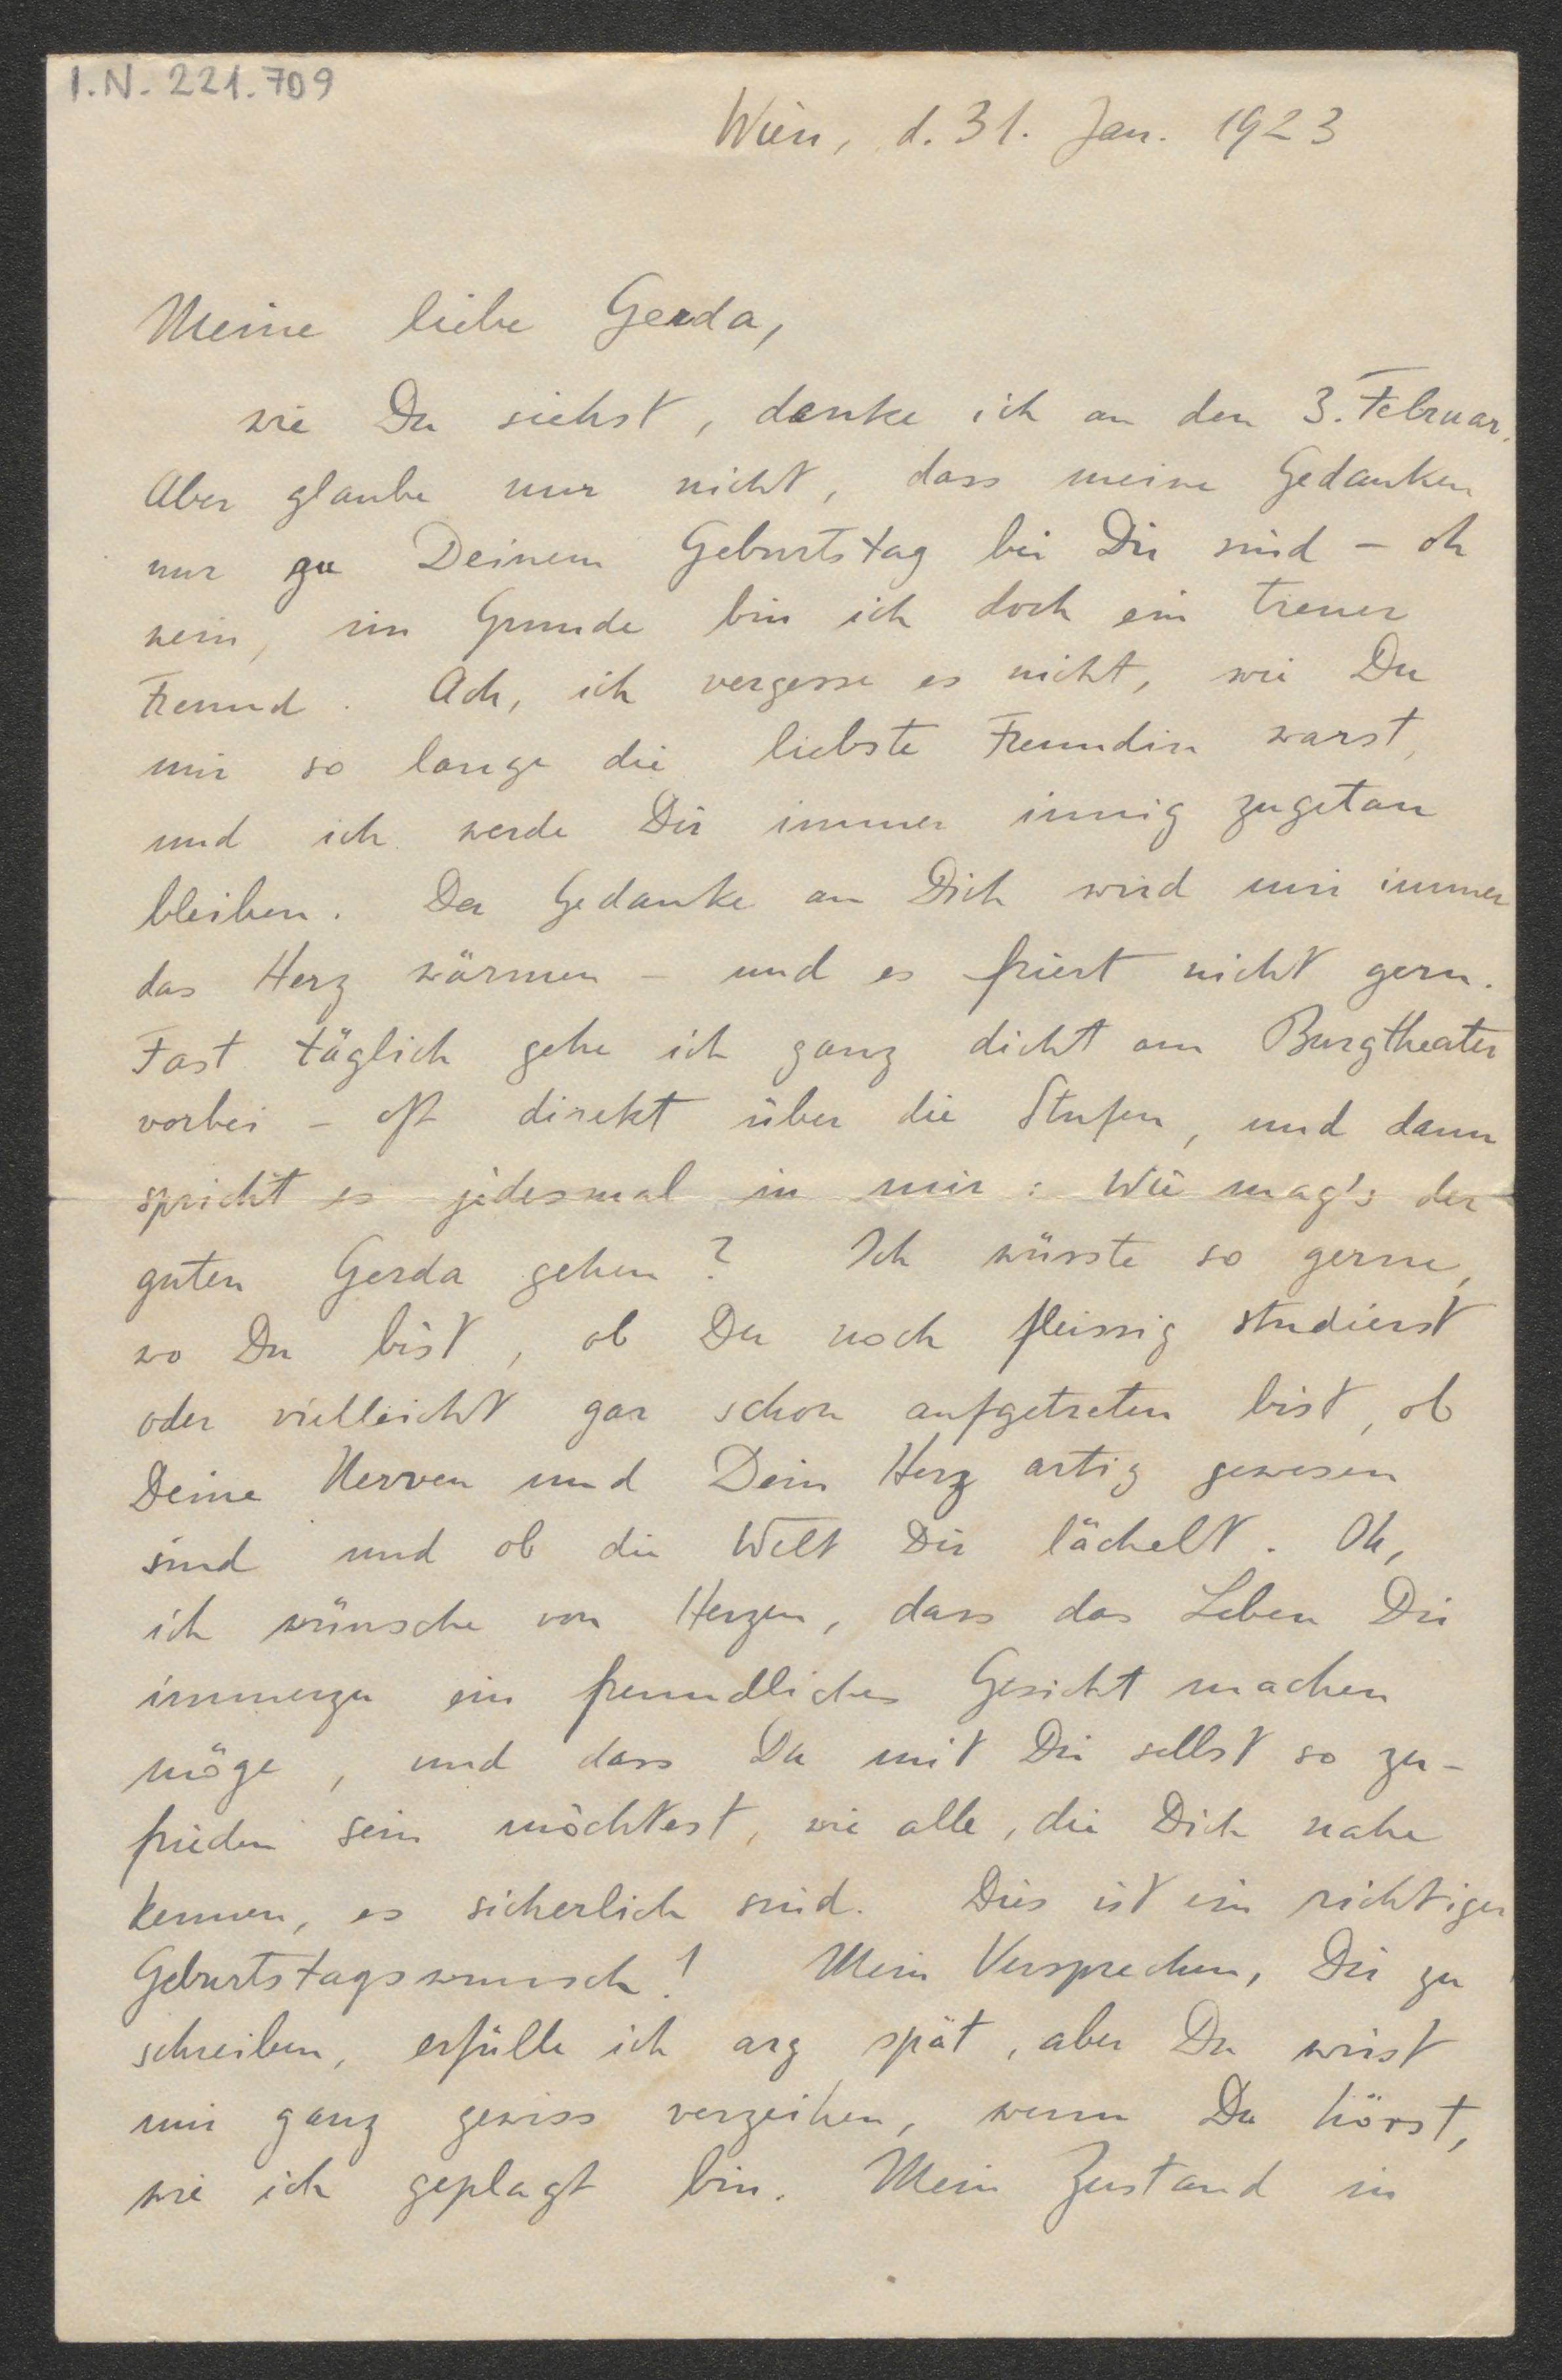 I.N. 221.709
Wien, d. 31. Jan. 1923
Meine liebe Gerda,
wie Du siehst, denke ich an den 3. Februar.
Aber glaube nur nicht, dass meine Gedanken
nur zu Deinem Geburtstag bei Dir sind – oh
nein, im Grunde bin ich doch ein treuer
Freund. Ach, ich vergesse es nicht, wie Du
mir so lange die liebste Freundin warst,
und ich werde Dir immer innig zugetan
bleiben. Der Gedanke an Dich wird mir immer
das Herz wärmen – und es friert nicht gern.
Fast täglich gehe ich ganz dicht am Burgtheater
vorbei – oft direkt über die Stufen, und dann
spricht es jedesmal in mir: Wie mag's der
guten Gerda gehen? Ich wüsste so gerne,
wo Du bist, ob Du noch fleissig studierst
oder vielleicht gar schon aufgetreten bist, ob
Deine Nerven und Dein Herz artig gewesen
sind und ob die Welt Dir lächelt. Oh,
ich wünsche von Herzen, dass das Leben Dir
immerzu ein freundliches Gesicht machen
möge, und dass Du mit Dir selbst so zu-
frieden sein möchtest, wie alle, die Dich nahe
kennen, es sicherlich sind. Dies ist ein richtiger
Geburtstagswunsch! Mein Versprechen, Dir zu
schreiben, erfülle ich arg spät, aber Du wirst
mir ganz gewiss verzeihen, wenn Du hörst,
wie ich geplagt bin. Mein Zustand in